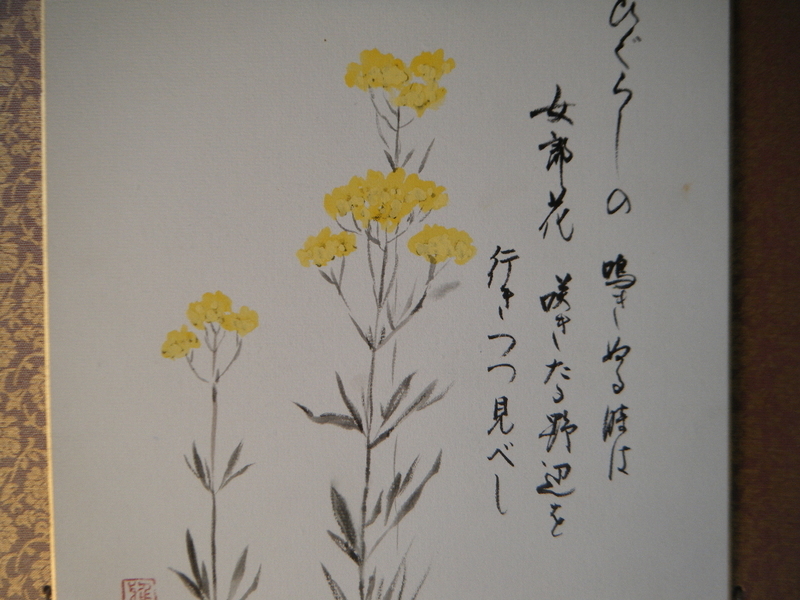 ひぐらしの 鳴きぬる時は
女郎花 咲きたる野辺を
行きつつ見べし